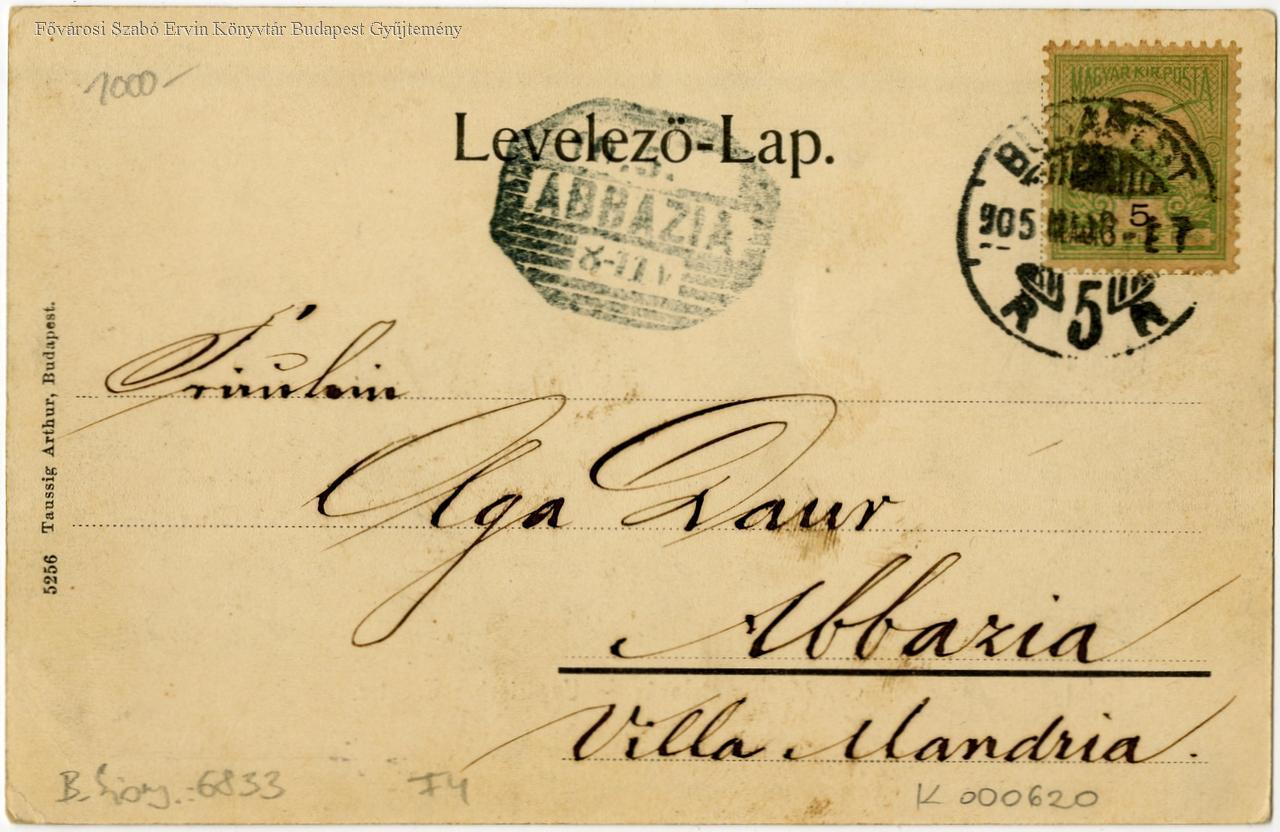 Fővárosi Szabó Ervin Könyvtár Budapest Gyűjtemény
1000-
MAGYAR KIR. POSTA
5
Levelező-Lap.
BUDAPEST
905
5
ABBAZIA
8-11 V
Fräulein
Olga Daur
Abbazia
Villa Mandria.
5256 Taussig Arthur, Budapest.
6833
F4
K 000620